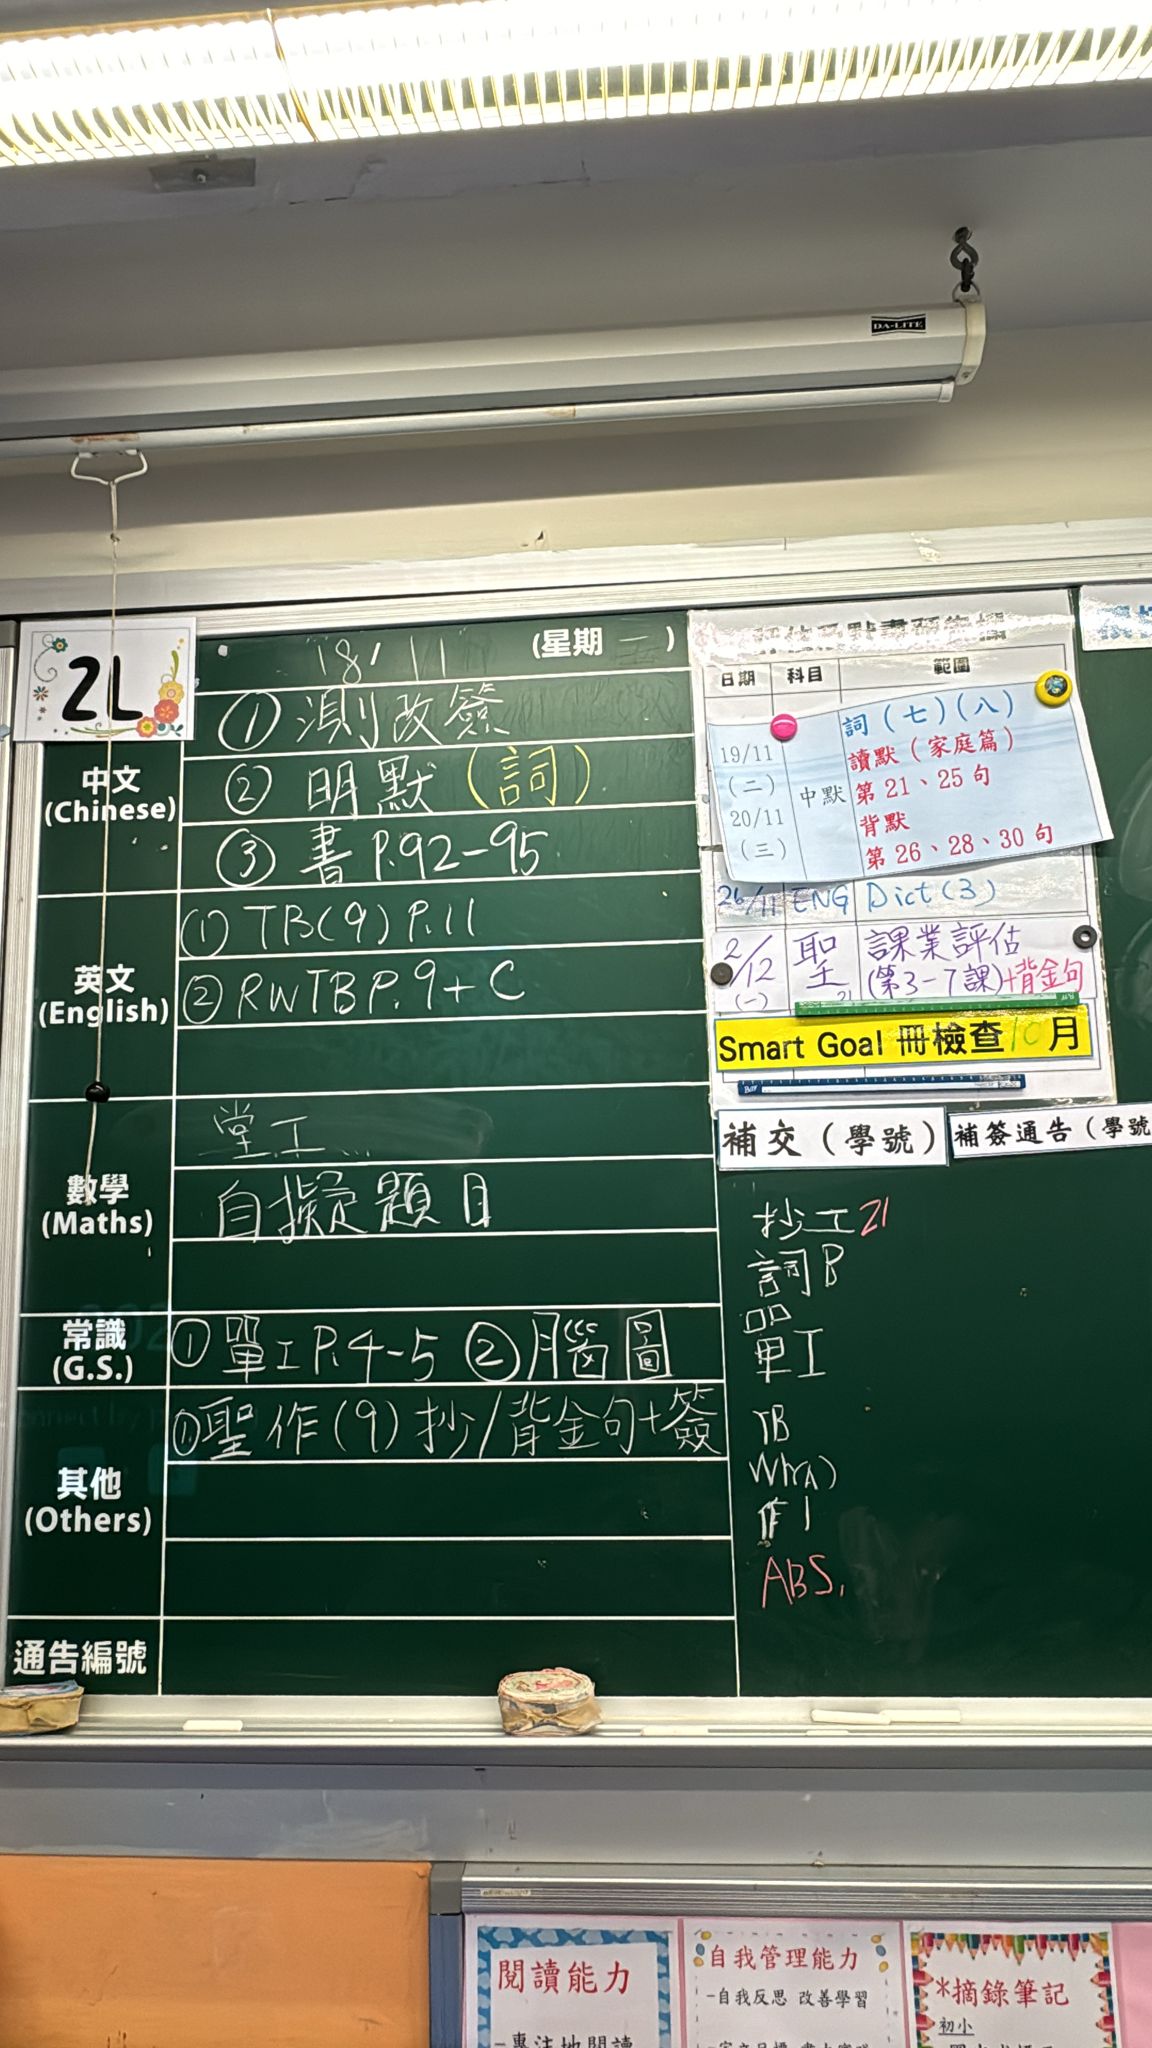 DA-LITE
2L
18/11 (星期一)
中文
(Chinese)
① 測改簽
② 明默(詞)
③ 書 P.92-95
英文
(English)
① TB(9) P.11
② RWTB P.9+C
數學
(Maths)
堂工
自擬題目
常識
(G.S.)
① 單工 P.4-5 ② 腦圖
其他
(Others)
① 聖作(9) 抄/背金句+簽
通告編號
日期 科目 範圍
19/11
(二)
20/11
(三)
中默
詞(七)(八)
讀默(家庭篇)
第 21、25 句
背默
第 26、28、30 句
26/11 ENG Dict(3)
2/12
(一)
聖
課業評估
(第3-7課)+背金句
Smart Goal 冊檢查10月
補交(學號)
補簽通告(學號
抄工 21
詞B
單工
TB
作1
ABS.
閱讀能力
-專注地閱讀
自我管理能力
-自我反思 改善學習
*摘錄筆記
初小